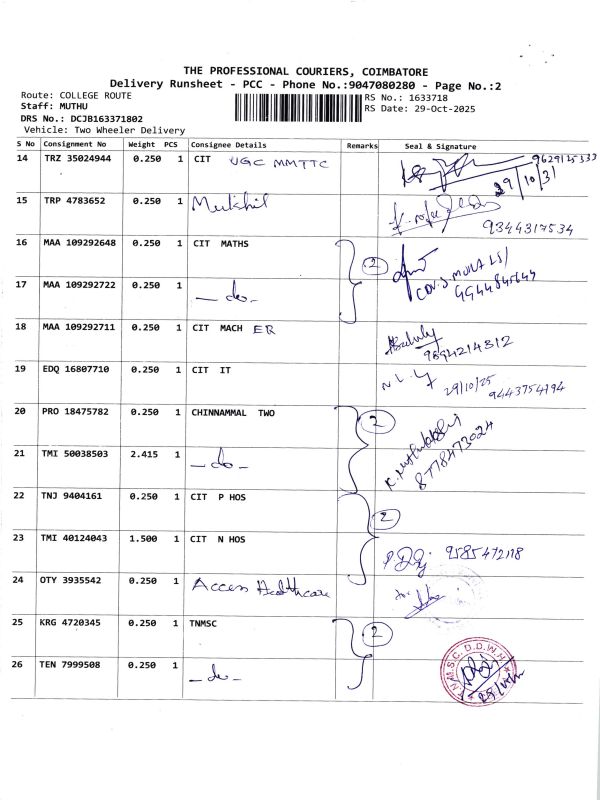 THE PROFESSIONAL COURIERS, COIMBATORE
Delivery Runsheet - PCC - Phone No.:9047080280 - Page No.:2
Route: COLLEGE ROUTE
Staff: MUTHU
DRS No.: DCJB163371802
Vehicle: Two Wheeler Delivery
RS No.: 1633718
RS Date: 29-Oct-2025
S No Consignment No Weight PCS Consignee Details Remarks Seal & Signature
14 TRZ 35024944 0.250 1 CIT UGC MMTTC
29/10/31
15 TRP 4783652 0.250 1 Mukhil 9344317534
16 MAA 109292648 0.250 1 CIT MATHS 2
17 MAA 109292722 0.250 1 - do -
18 MAA 109292711 0.250 1 CIT MACH ER 9894214312
19 EDQ 16807710 0.250 1 CIT IT 29/10/25 9443754194
20 PRO 18475782 0.250 1 CHINNAMMAL TWO 2
21 TMI 50038503 2.415 1 - do - 8778473024
22 TNJ 9404161 0.250 1 CIT P HOS 2
23 TMI 40124043 1.500 1 CIT N HOS
24 OTY 3935542 0.250 1 Access Healthcare
25 KRG 4720345 0.250 1 TNMSC 2
26 TEN 7999508 0.250 1 - do -